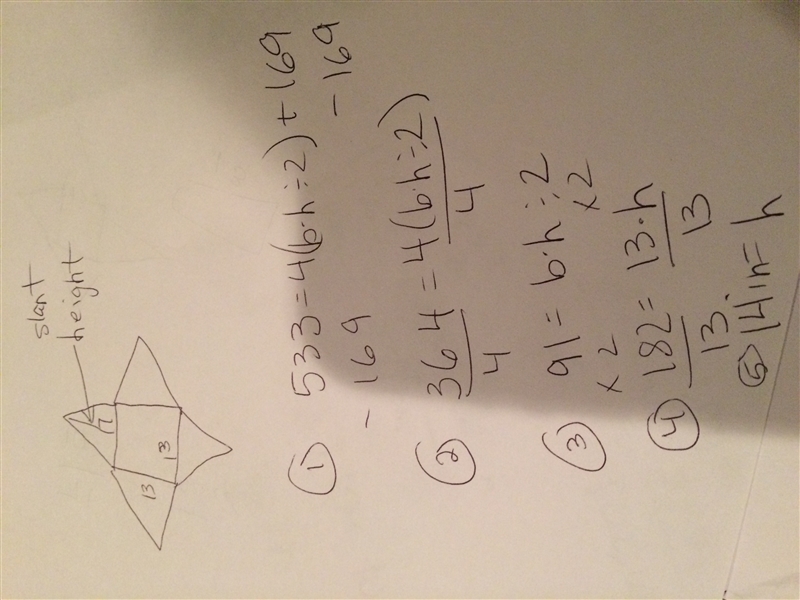 slant
height
h
13
13
① 533 = 4(b·h÷2) + 169
- 169 - 169
② 364 = 4(b·h÷2)
4 4
③ 91 = b·h÷2
×2 ×2
④ 182 = 13·h
13 13
⑤ 14 in = h